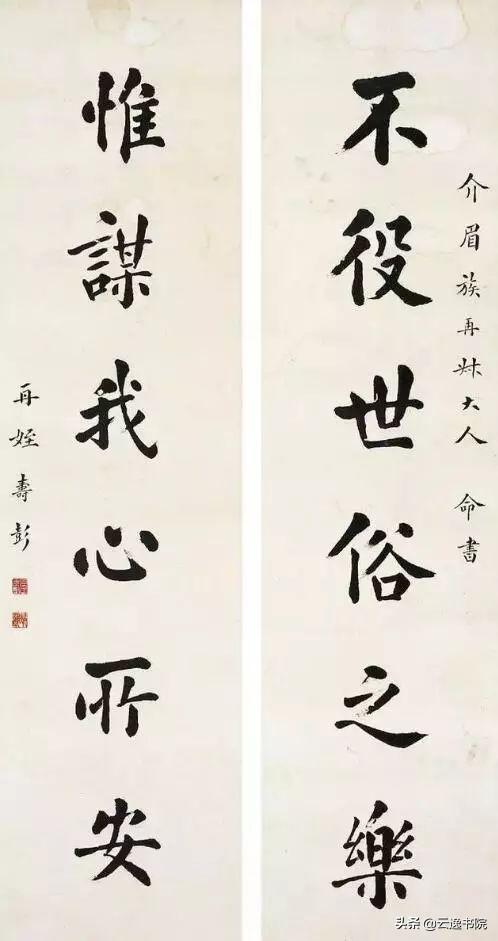 介眉族再叔大人 命書
不役世俗之樂
惟謀我心所安
再姪壽彭
头条@云逸书院